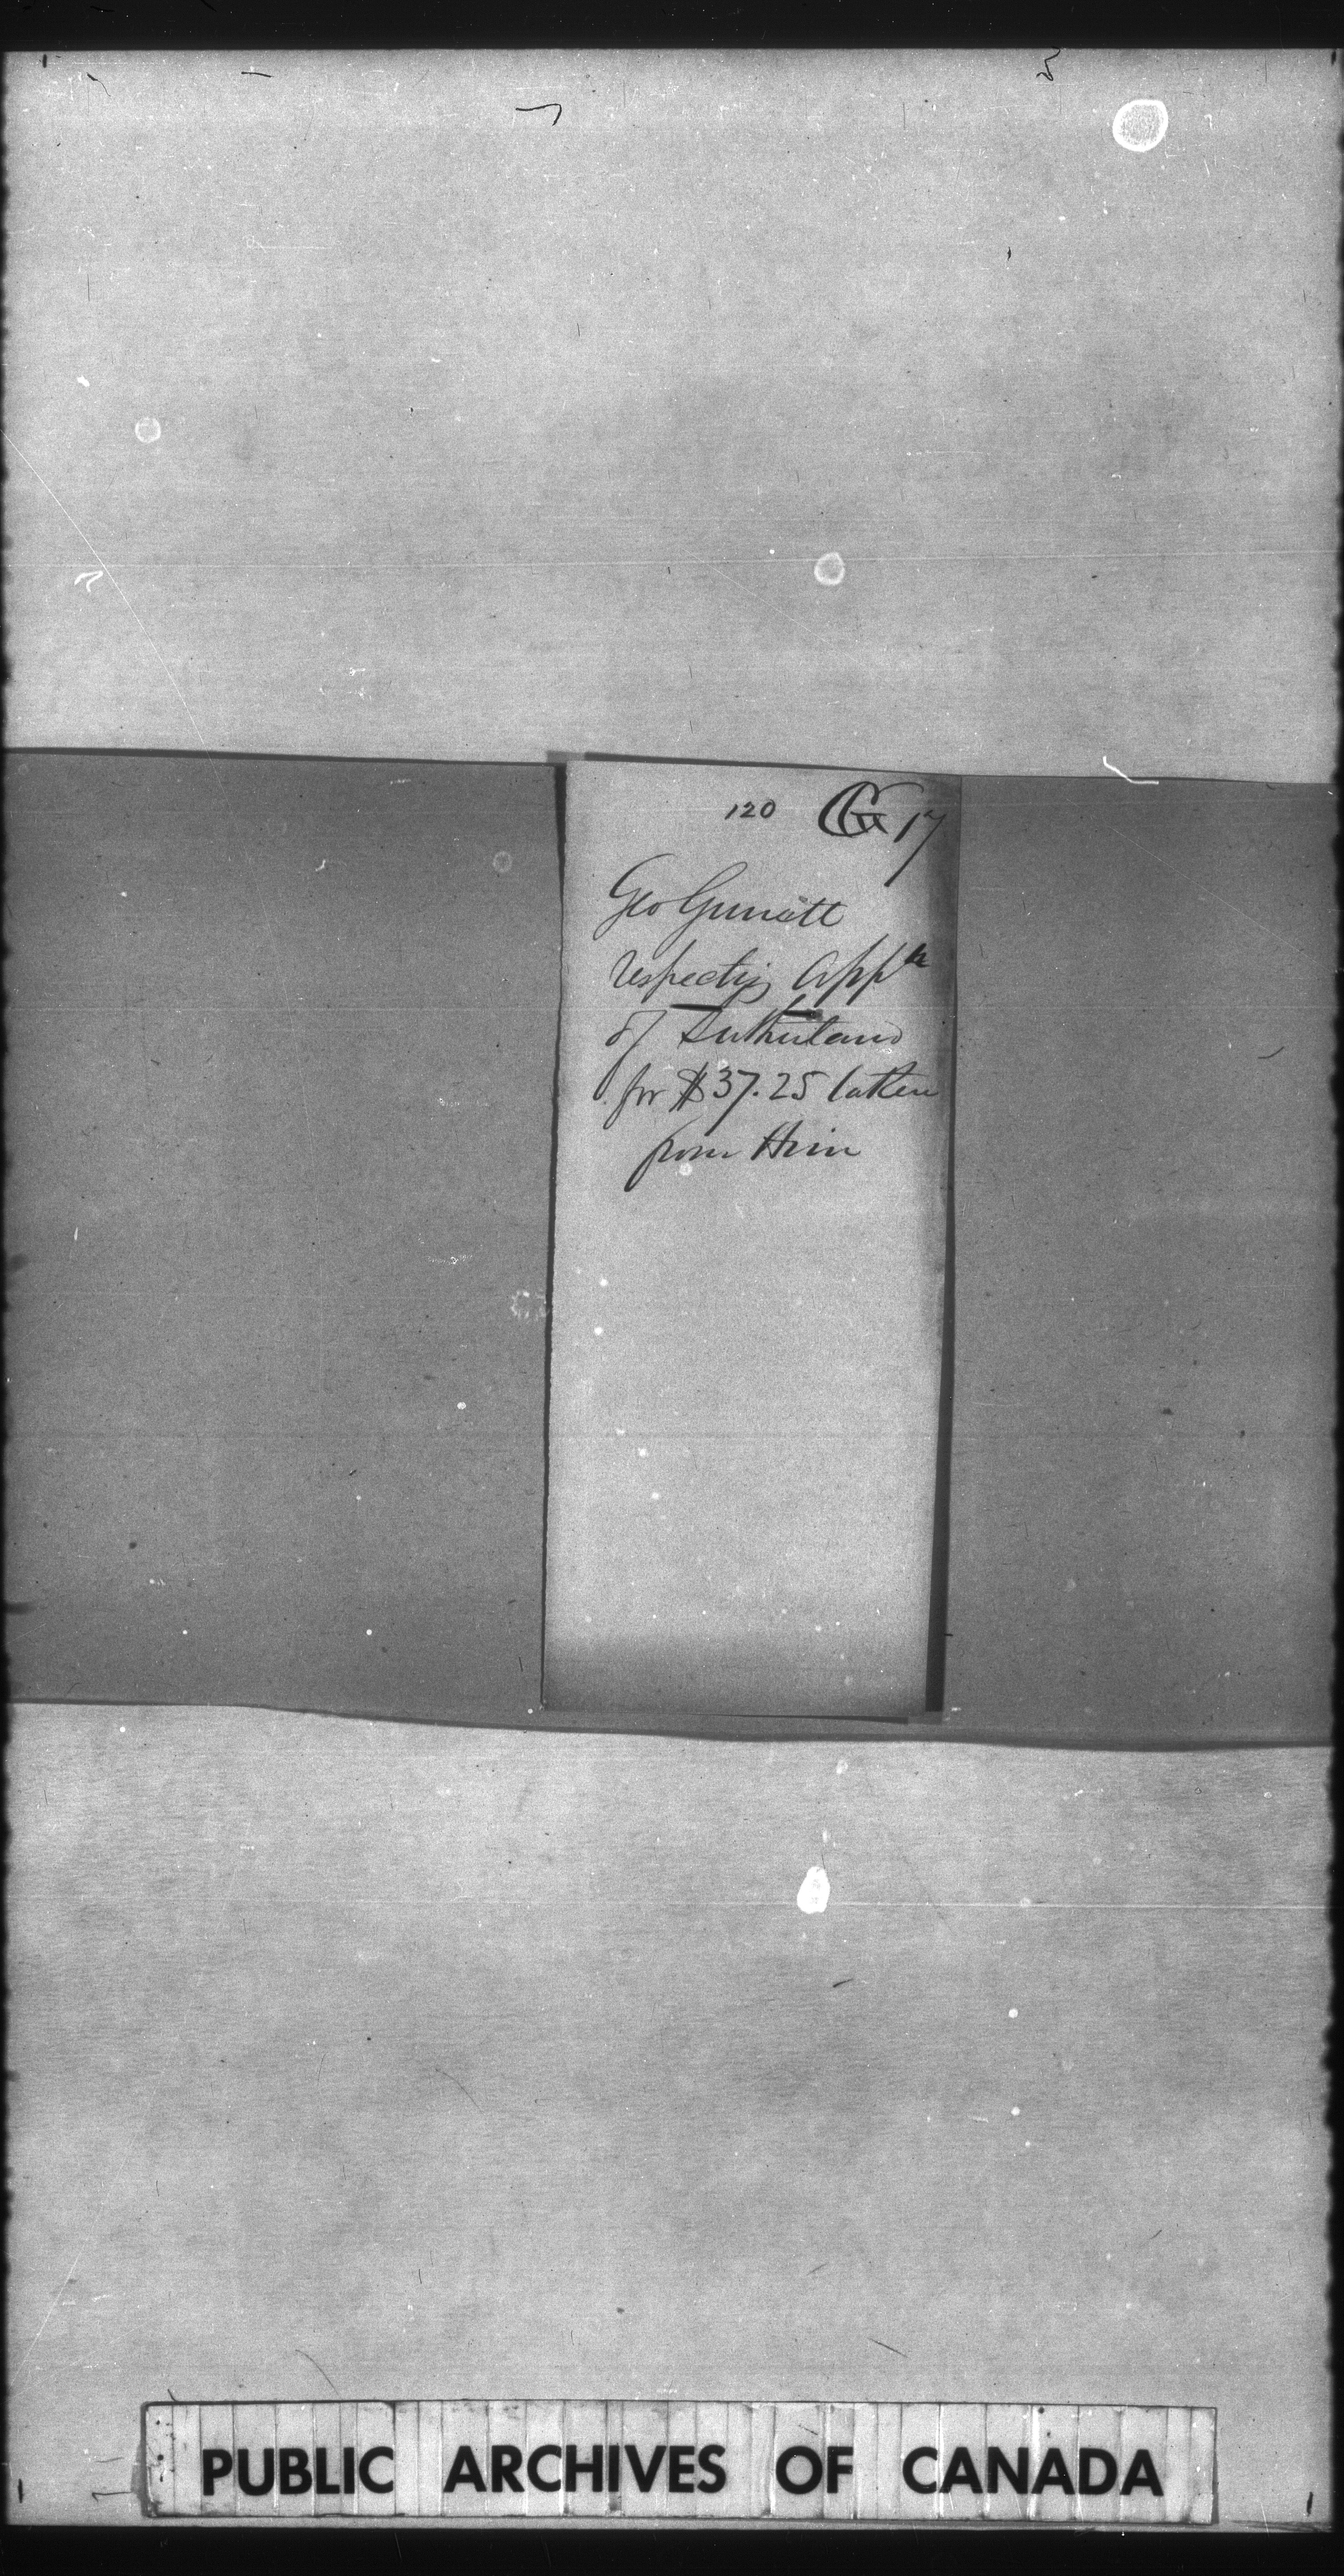 120 G 17
Geo Gurnett
respecting Appn
of Sutherland
for $37.25 taken
from Him
PUBLIC ARCHIVES OF CANADA